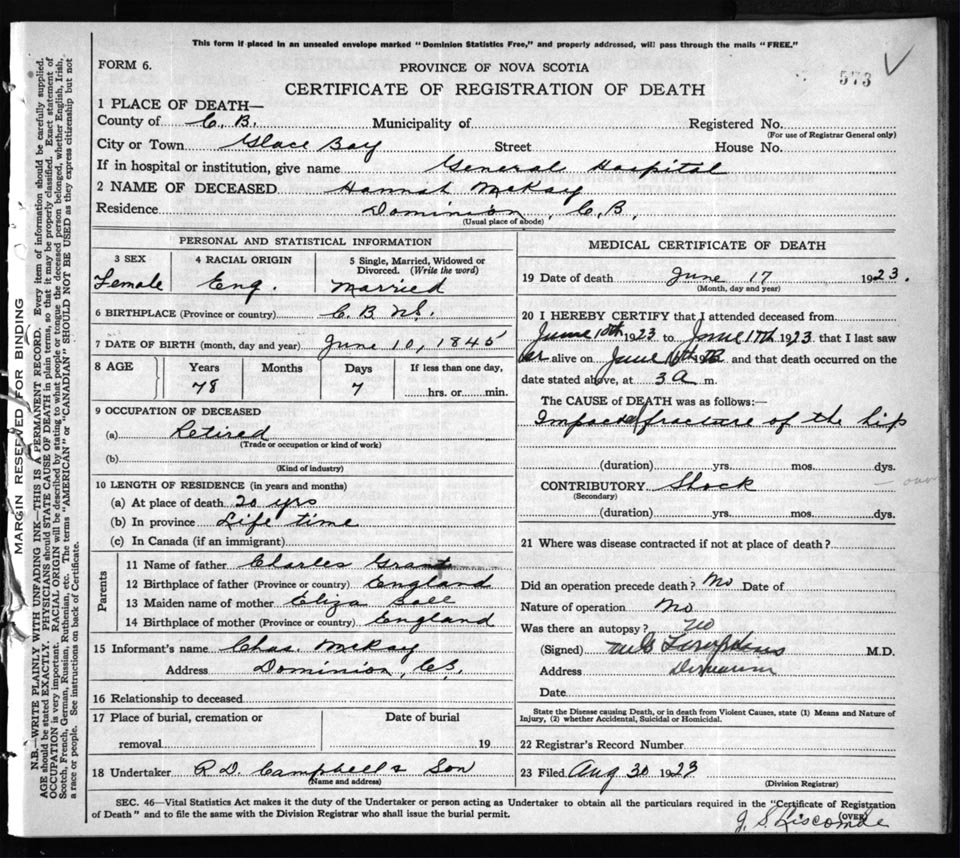 This form if placed in an unsealed envelope marked "Dominion Statistics Free," and properly addressed, will pass through the mails "FREE."
FORM 6.
PROVINCE OF NOVA SCOTIA
573
CERTIFICATE OF REGISTRATION OF DEATH
1 PLACE OF DEATH—
County of C. B. Municipality of Registered No.
(For use of Registrar General only)
City or Town Glace Bay Street House No.
If in hospital or institution, give name General Hospital
2 NAME OF DECEASED Hannah McKay
Residence Dominion, C, B,
(Usual place of abode)
PERSONAL AND STATISTICAL INFORMATION
3 SEX
Female
4 RACIAL ORIGIN
Eng.
5 Single, Married, Widowed or Divorced. (Write the word)
Married
6 BIRTHPLACE (Province or country) C. B N S.
7 DATE OF BIRTH (month, day and year) June 10, 1845
8 AGE
Years
78
Months
Days
7
If less than one day,
hrs. or min.
9 OCCUPATION OF DECEASED
(a) Retired
(Trade or occupation or kind of work)
(b)
(Kind of industry)
10 LENGTH OF RESIDENCE (in years and months)
(a) At place of death 20 yrs
(b) In province Life time
(c) In Canada (if an immigrant)
Parents
11 Name of father Charles Grant
12 Birthplace of father (Province or country) England
13 Maiden name of mother Eliza Ball
14 Birthplace of mother (Province or country) England
15 Informant's name Chas. McKay
Address Dominion, C.B.
16 Relationship to deceased
17 Place of burial, cremation or removal
Date of burial
19
18 Undertaker R D. Campbell & Son
(Name and address)
MEDICAL CERTIFICATE OF DEATH
19 Date of death June 17 1923.
(Month, day and year)
20 I HEREBY CERTIFY that I attended deceased from
June 10th 1923 to June 17th 1923 that I last saw
her alive on June 16th and that death occurred on the
date stated above, at 3 A m.
The CAUSE of DEATH was as follows:—
Impacted fracture of the hip
(duration) yrs. mos. dys.
CONTRIBUTORY Shock
(Secondary)
(duration) yrs. mos. dys.
21 Where was disease contracted if not at place of death?
Did an operation precede death? No Date of
Nature of operation No
Was there an autopsy? no
(Signed) M.D.
Address
Date
State the Disease causing Death, or in death from Violent Causes, state (1) Means and Nature of
Injury, (2) whether Accidental, Suicidal or Homicidal.
22 Registrar's Record Number
23 Filed Aug 30 1923
(Division Registrar)
J. S. Liscombe
SEC. 46—Vital Statistics Act makes it the duty of the Undertaker or person acting as Undertaker to obtain all the particulars required in the "Certificate of Registration
of Death" and to file the same with the Division Registrar who shall issue the burial permit.
(OVER)
MARGIN RESERVED FOR BINDING
N.B.—WRITE PLAINLY WITH UNFADING INK—THIS IS A PERMANENT RECORD. Every item of information should be carefully supplied.
AGE should be stated EXACTLY. PHYSICIANS should STATE CAUSE OF DEATH in plain terms, so that it may be properly classified. Exact statement of
OCCUPATION is very important. RACIAL ORIGIN will be described by stating to what people or tongue the deceased person belonged, whether English, Irish,
Scotch, French, German, Russian, Ruthenian, etc. The terms "AMERICAN" or "CANADIAN" SHOULD NOT BE USED as they express citizenship but not
a race or people. See instructions on back of Certificate.